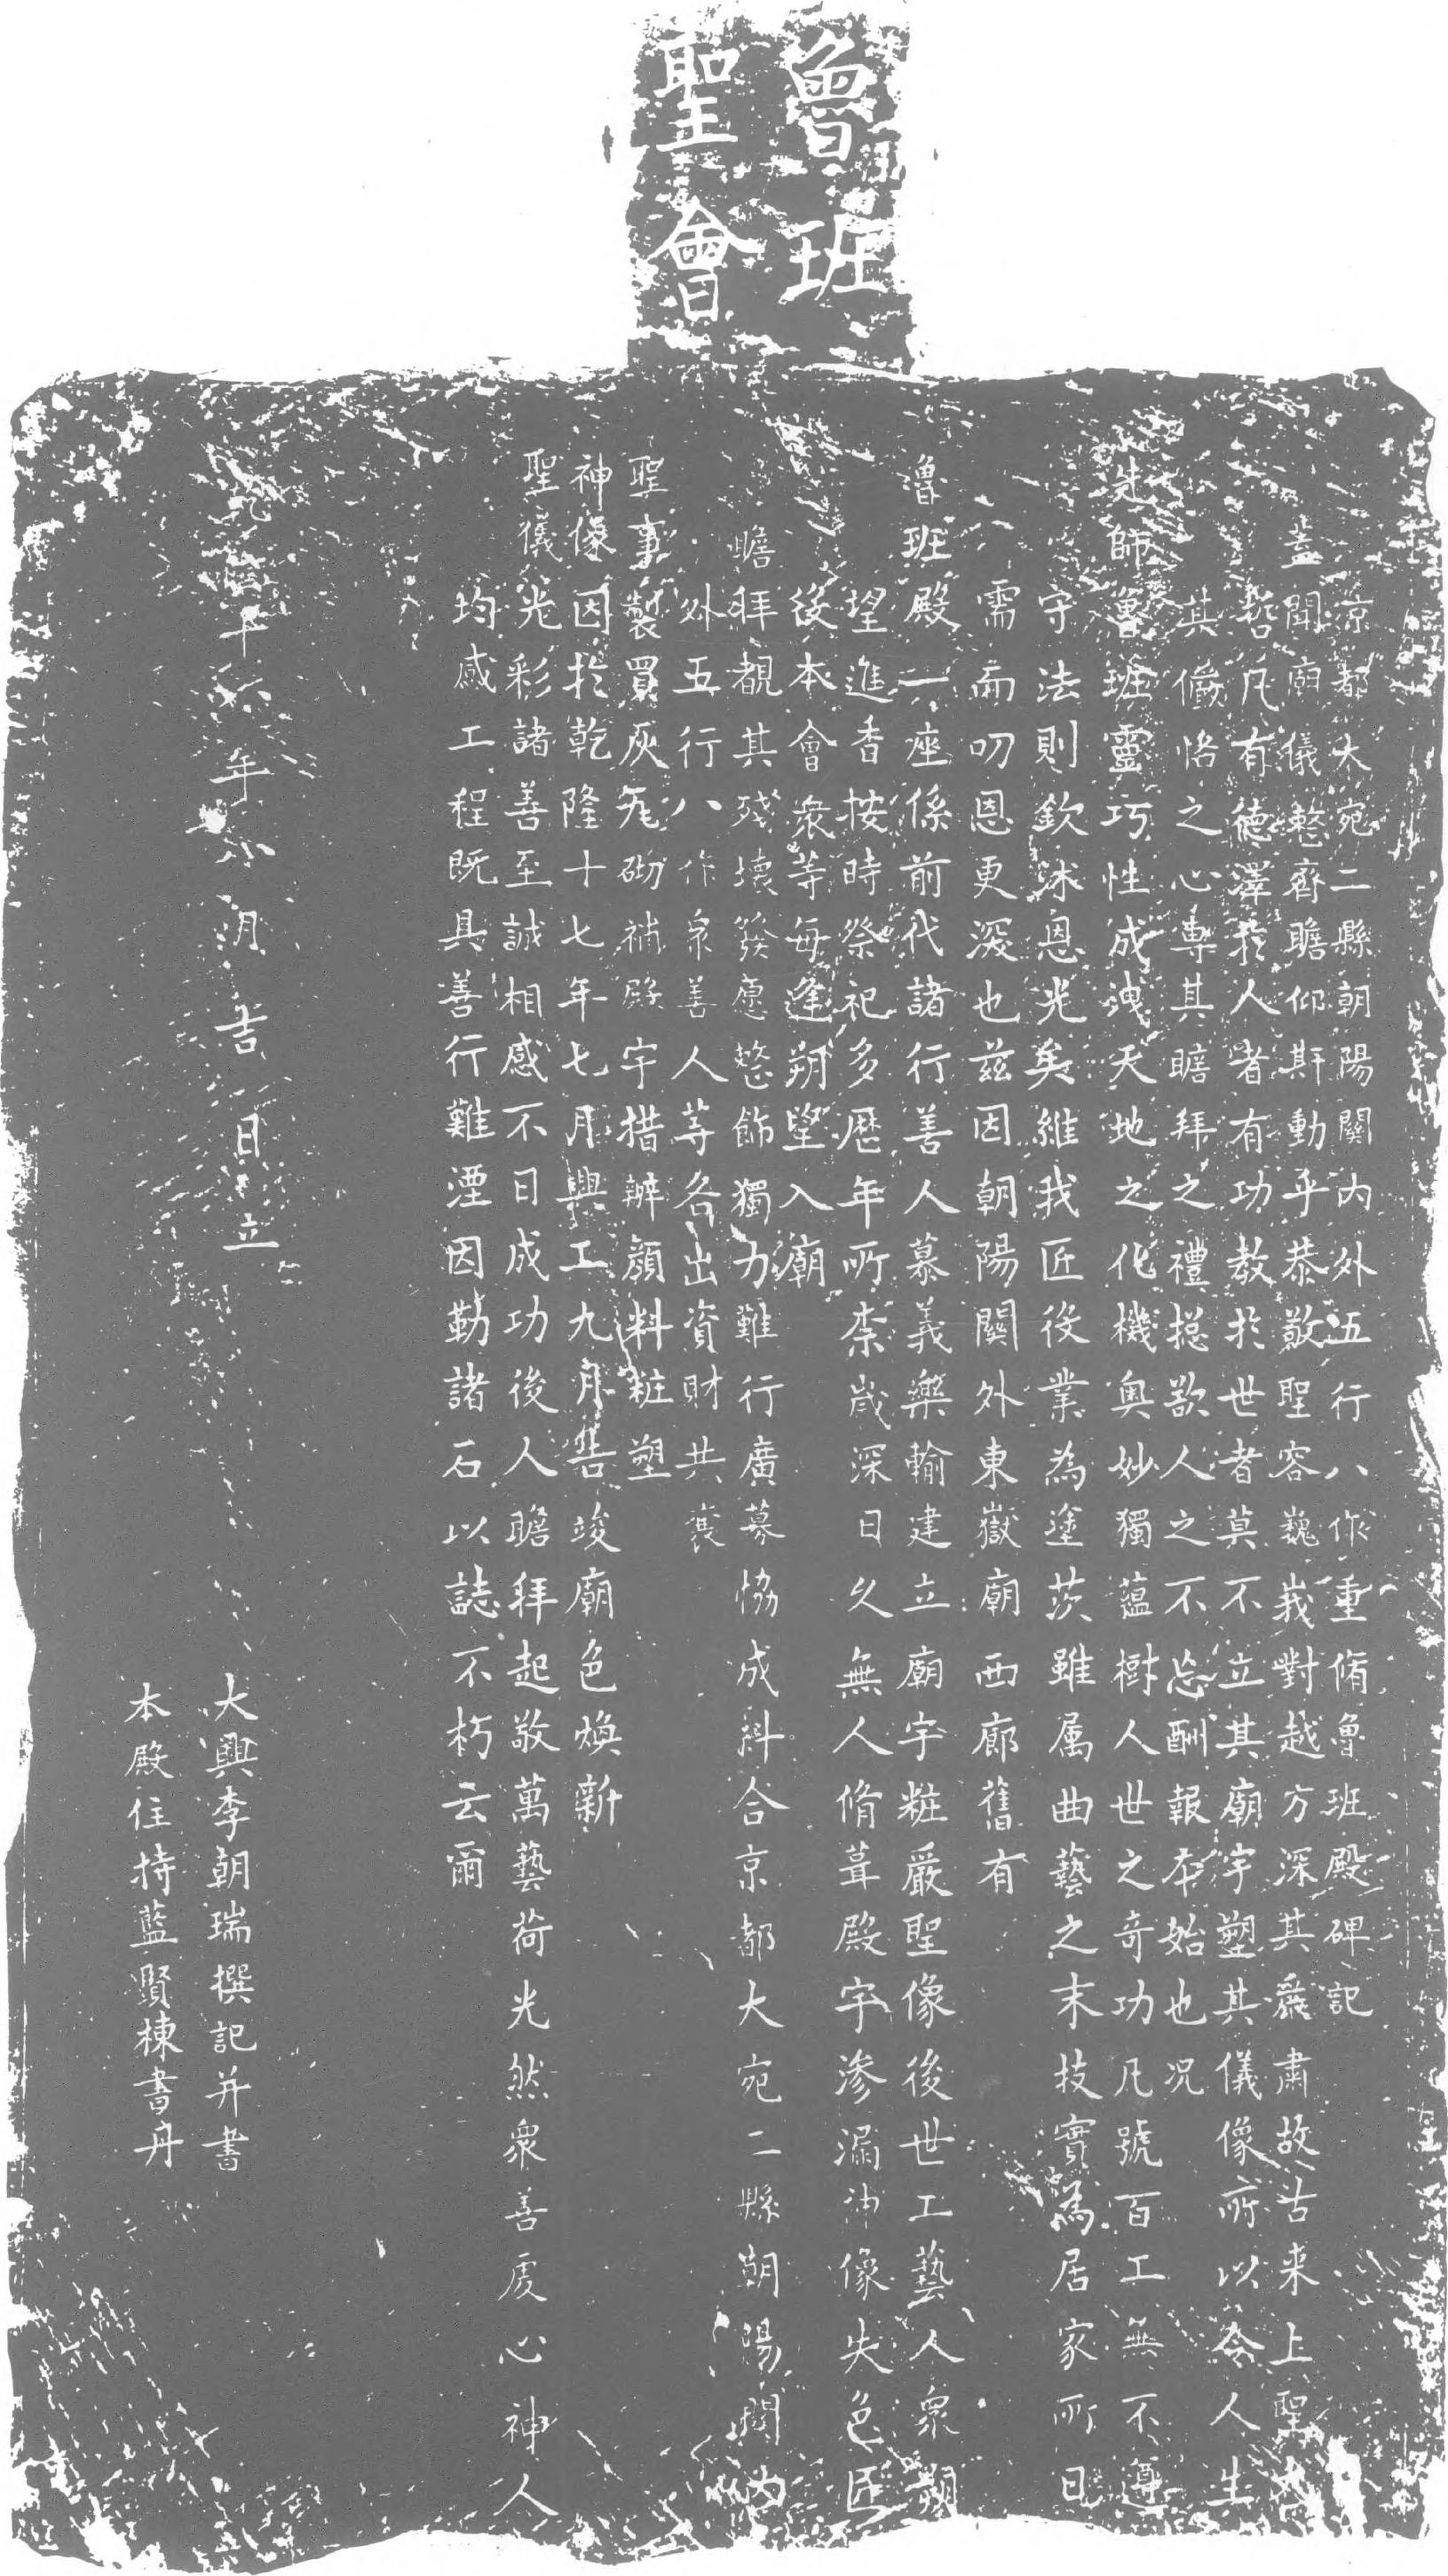 魯班
聖會
京都大宛二縣朝陽關內外五行八作重脩魯班殿碑記
蓋聞廟儀整齊瞻仰斯動乎恭敬聖容巍峩對越方深其嚴肅故古来上聖大
哲凡有德澤扵人者有功教扵世者莫不立其廟宇塑其儀像所以令人生
其儼恪之心専其瞻拜之禮揔欲人之不忘酬報夲始也况
先師魯班靈巧性成洩天地之化機奥妙獨蘊樹人世之奇功凡號百工無不遵
守法則欽沐恩光矣維我匠役業為塗茨雖属曲藝之末技實為居家所日
需而叨恩更深也兹因朝陽關外東嶽廟西廊舊有
魯班殿一座係前代諸行善人慕義樂輸建立廟宇粧嚴聖像後世工藝人衆朔
望進香按時祭祀多歷年所柰歲深日久無人脩葺殿宇滲漏神像失色匠
後本會衆等每逢朔望入廟
瞻拜覩其殘壞發愿整飾獨力難行廣募恊成糾合京都大宛二縣朝陽關內
外五行八作衆善人等各出資財共襄
聖事製買灰瓦砌補殿宇措辦顏料粧塑
神像因扵乾隆十七年七月興工九月告竣廟色煥新
聖儀光彩諸善至誠相感不日成功後人瞻拜起敬萬藝荷光然衆善虔心神人
均感工程既具善行難湮因勒諸石以誌不朽云爾
年八月吉日立
大興李朝瑞撰記并書
本殿住持藍賢棟書丹